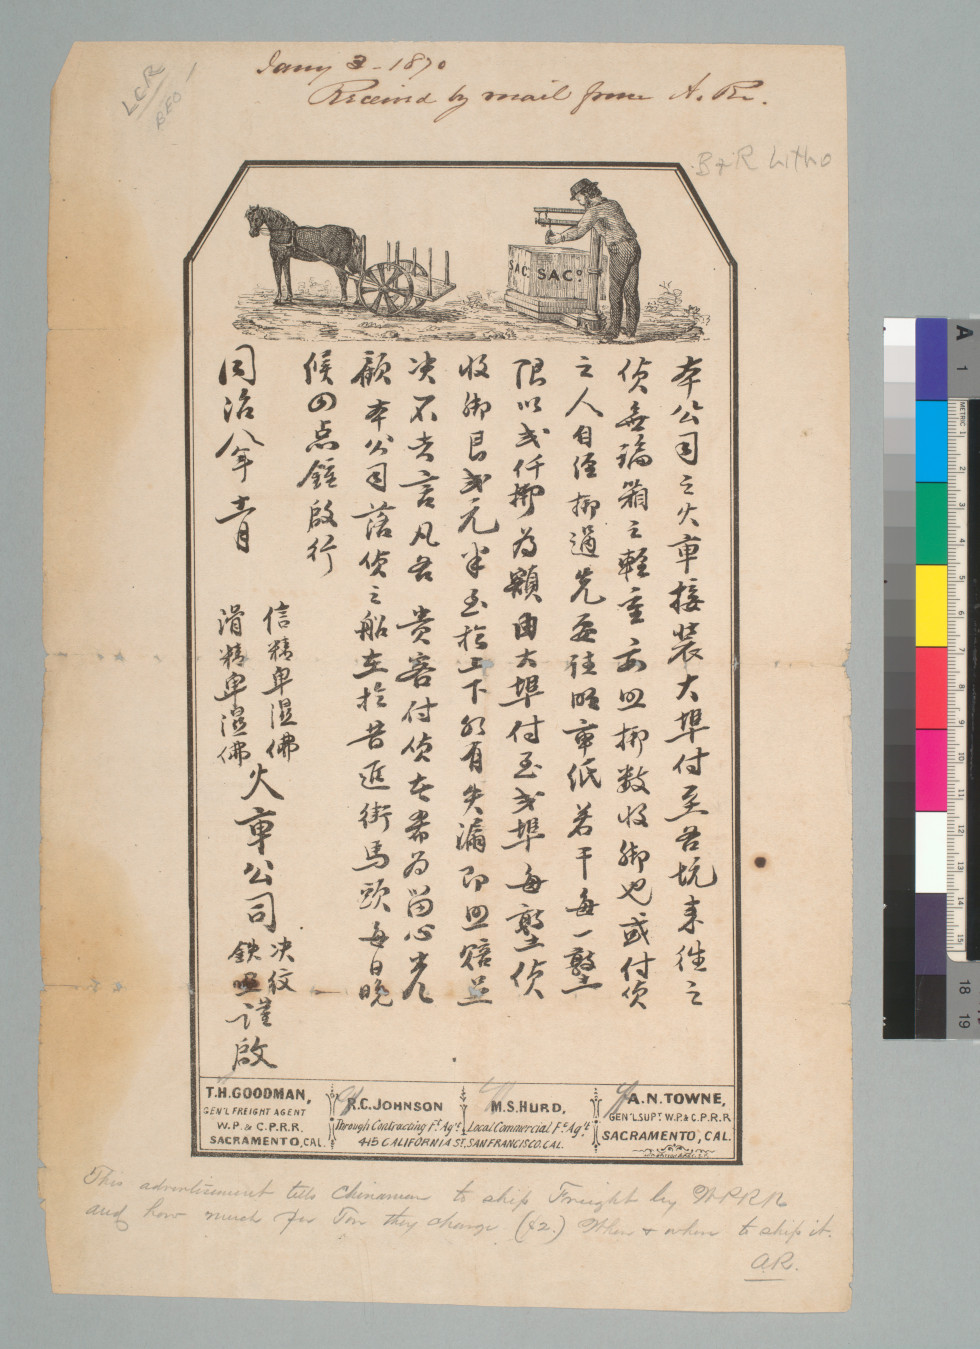 Jany 3 - 1870
Received by mail from A. R.
LCR
BEO
B & R Litho
SAC. SACº
本公司之火車接裝大埠付至各坑來往之
貨無論箱之輕重亦照磅數收脚也或付貨
之人自僱磅過先要往晤車紙若干每一墪
限以弍仟磅為額由大埠付至弍埠每墪貨
收脚艮弍元半至於上下如有失漏即照賠並
决不失言凡各貴客付貨者希為留心光
顧本公司落貨之船在於昔匯街馬頭每日晚
候四点鐘啟行
同治八年十一月
信精卑濕佛
滑精卑濕佛
火車公司
决紋
鉄
謹啟
T.H. GOODMAN,
GEN'L FREIGHT AGENT
W.P. & C.P.R.R.
SACRAMENTO, CAL.
R.C. JOHNSON
Through Contracting Ft. Agt.
M.S. HURD,
Local Commercial Ft. Agt.
415 CALIFORNIA ST, SAN FRANCISCO, CAL.
A.N. TOWNE,
GEN'L SUPT. W.P. & C.P.R.R.
SACRAMENTO, CAL.
This advertisement tells Chinamen to ship Freight by WPRR
and how much per Ton they charge ($2.) When & where to ship it.
A.R.
A
1
METRIC
18 19